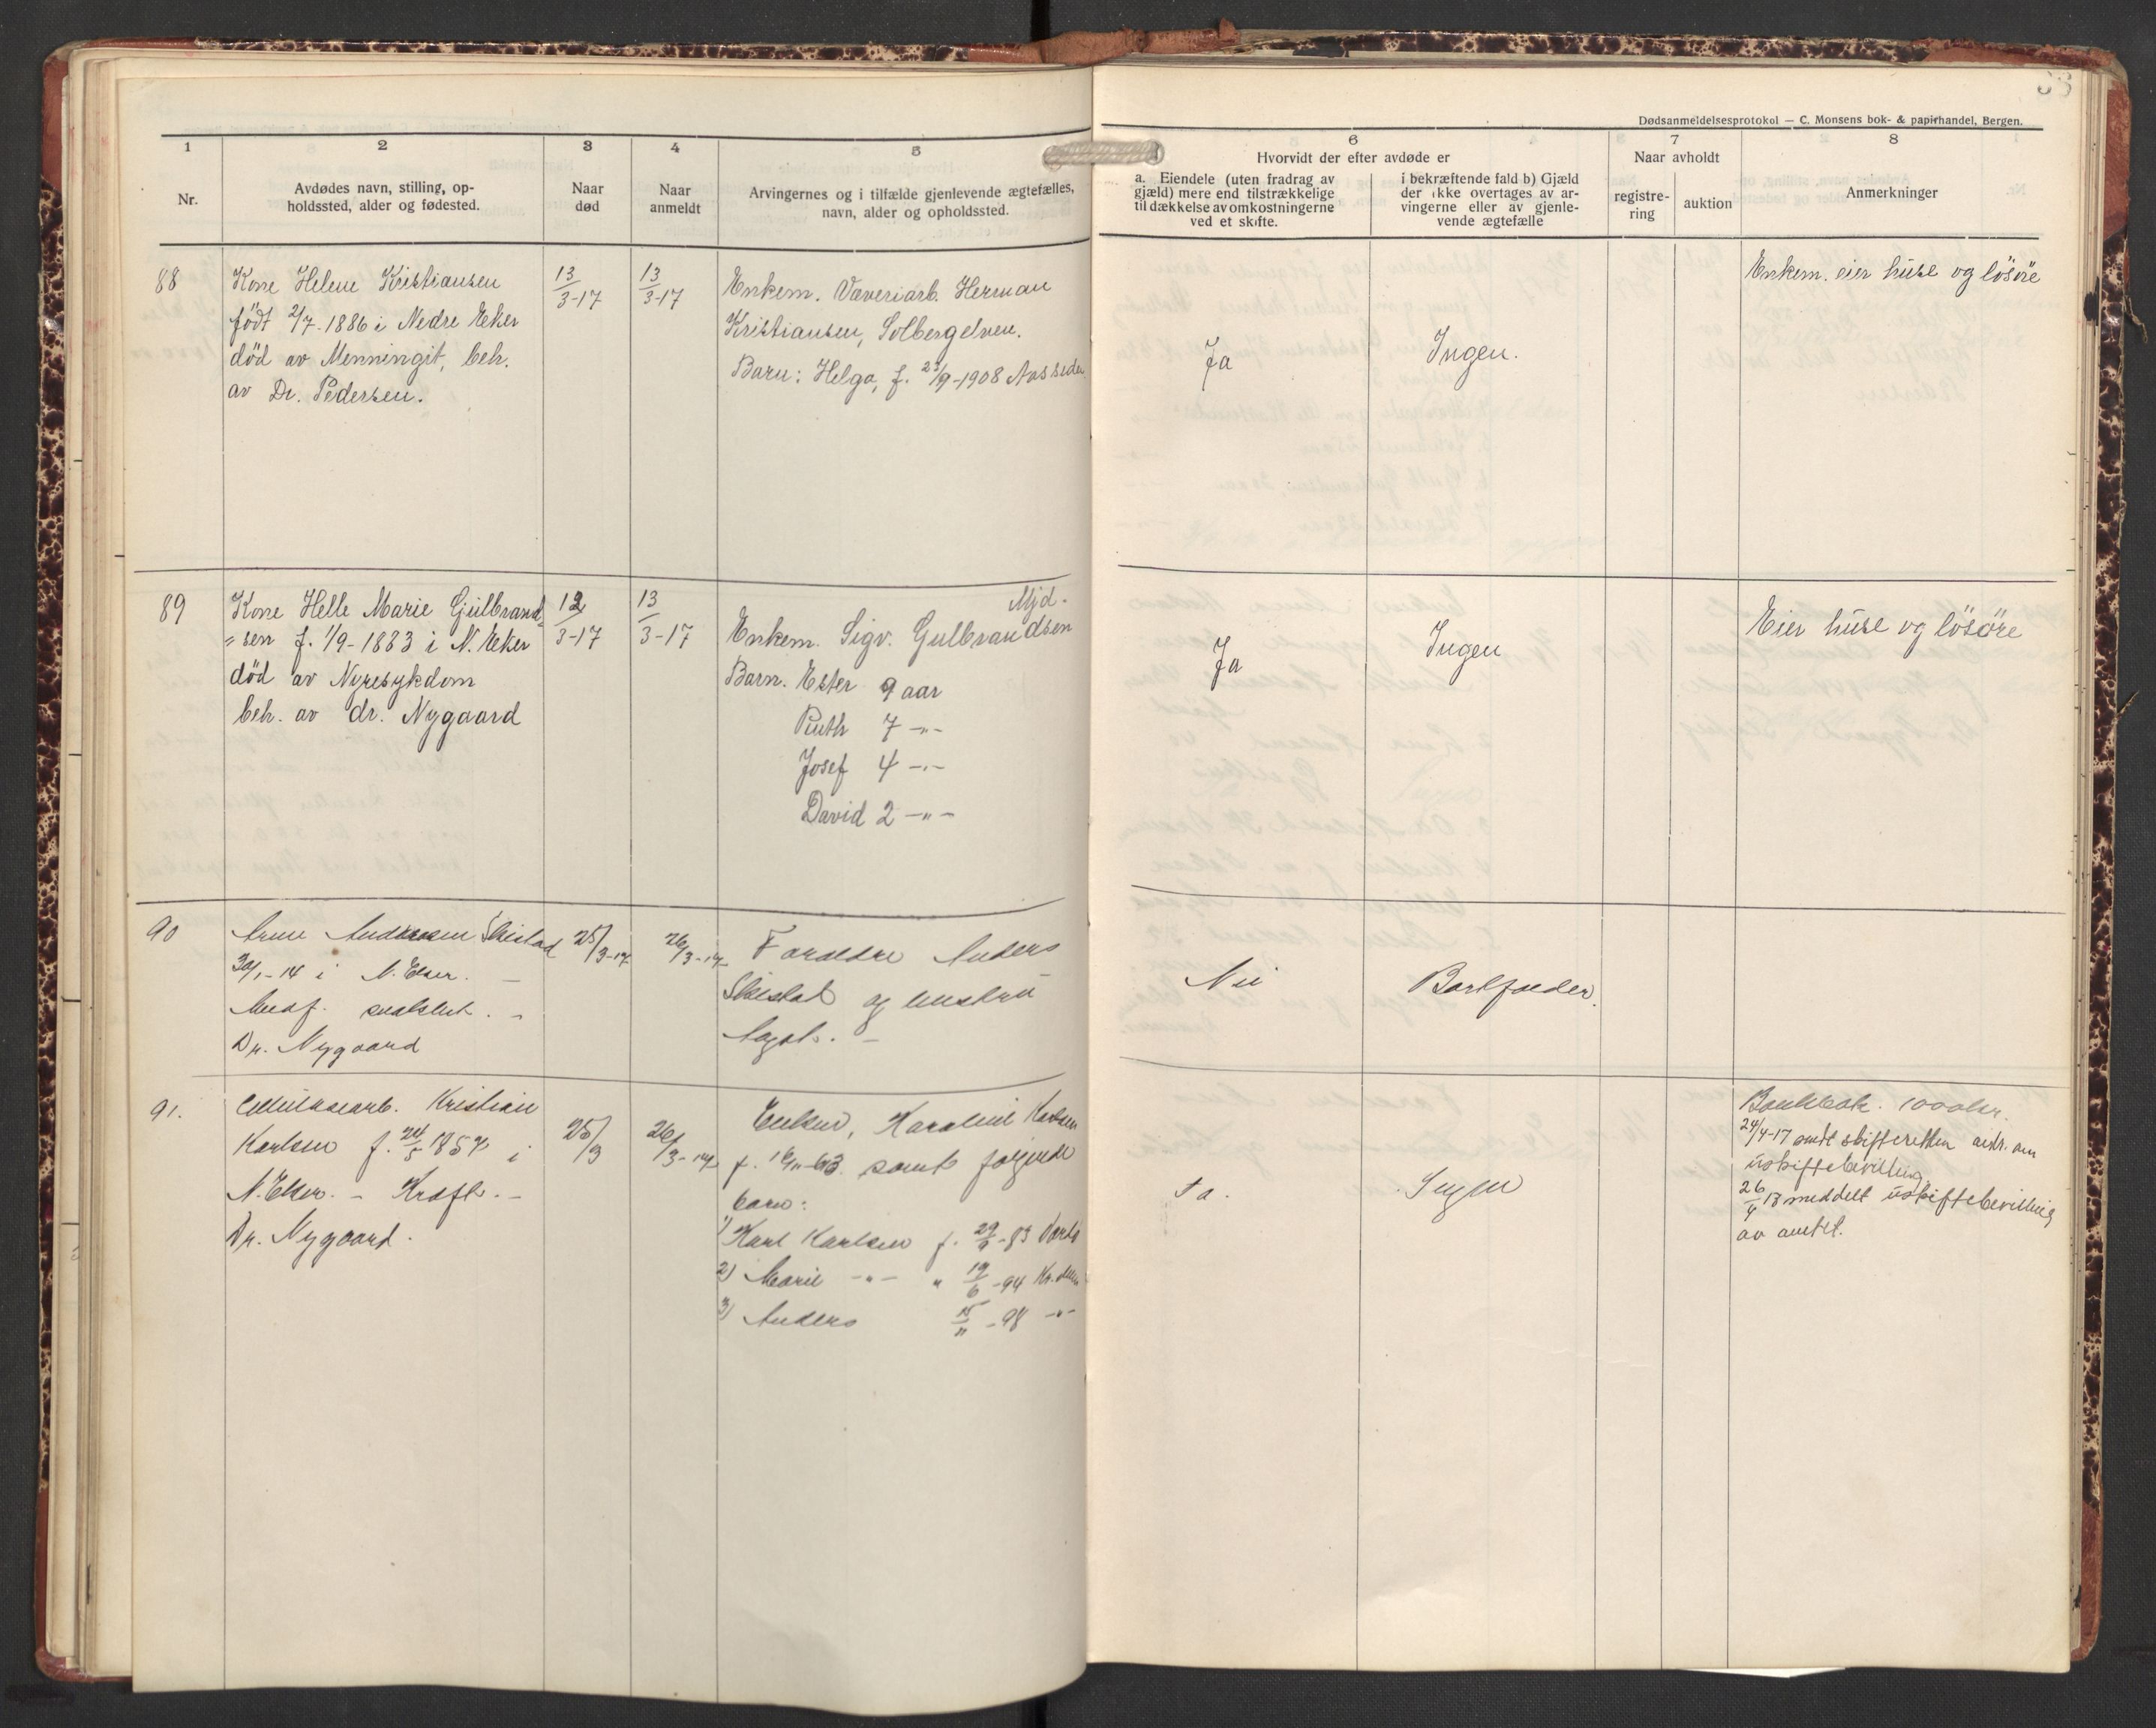 Dødsanmeldelsesprotokol — C. Monsens bok- & papirhandel, Bergen.
1
Nr.
2
Avdødes navn, stilling, op-
holdssted, alder og fødested.
3
Naar
død
4
Naar
anmeldt
5
Arvingernes og i tilfælde gjenlevende ægtefælles,
navn, alder og opholdssted.
6
Hvorvidt der efter avdøde er
a. Eiendele (uten fradrag av
gjæld) mere end tilstrækkelige
til dækkelse av omkostningerne
ved et skifte.
i bekræftende fald b) Gjæld
der ikke overtages av ar-
vingerne eller av gjenle-
vende ægtefælle
7
Naar avholdt
registre-
ring
auktion
8
Anmerkninger
88
Kone Helene Kristiansen
født 2/7-1886 i Nedre Eker
død av Menningit, beh.
av Dr. Pedersen.
13/3-17
13/3-17
Enkem. Væveriarb. Herman
Kristiansen, Solbergelven.
Barn: Helga, f. 23/9-1908
Ja
Ingen.
Enkem. eier huse og løsøre
89
Kone Helle Marie Gulbrand
sen f. 1/9-1883 i N. Eker
død av Nyresykdom
beh. av dr. Nygaard
12/3-17
13/3-17
Mjd-
Enkem. Sigv. Gulbrandsen
Barn. Ester 9 aar
Ruth 7 -"-
Josef 4 -"-
David 2 -"-
Ja
Ingen
Eier huse og løsøre
90
Andersen Skistad
30/1-14 i N. Eker. -
Dr. Nygaard
25/3-17
26/3-17
Forældre Anders
Skistad og hustru
-
Nei
91.
Cellulosearb. Kristian
Karlsen f. 24/5 1857 i
N. Eker. - Kræft. -
Dr. Nygaard.
25/3
26/3-17
Enken, Karoline Karlsen
f. 16/11-63. samt følgende
barn:
1) Karl Karlsen f. 29/9-83
2) Marie -"- " 19/6-94
3) Anders 15/11-98 -"-
Ja.
Ingen
Bankbok. 1000 kr.
24/4-17 sendt skifteretten andr. om
uskiftebevilling.
26/4 13 meddelt uskiftebevilling
av amtet.